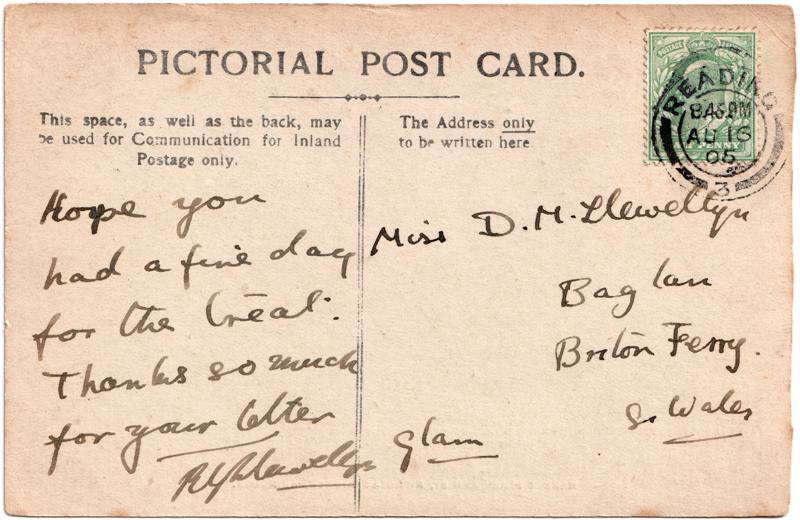 PICTORIAL POST CARD.
This space, as well as the back, may
be used for Communication for Inland
Postage only.
The Address only
to be written here
POSTAGE
PENNY
READING
8.45PM
AU 16
05
3
Hope you
had a fine day
for the Treat.
Thanks so much
for your letter
Llewellyn
Miss D. M. Llewellyn
Baglan
Briton Ferry.
S. Wales
Glam